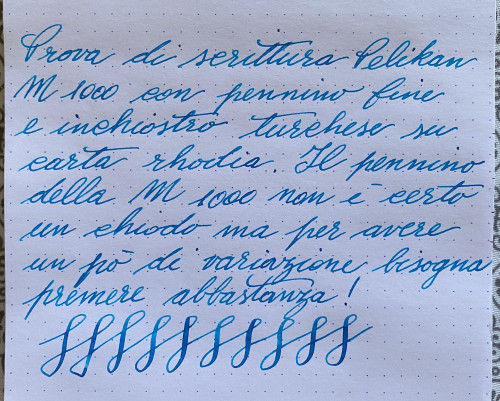 Prova di scrittura Pelikan
M 1000 con pennino fine
e inchiostro turchese su
carta rhodia. Il pennino
della M 1000 non è certo
un chiodo ma per avere
un pò di variazione bisogna
premere abbastanza!